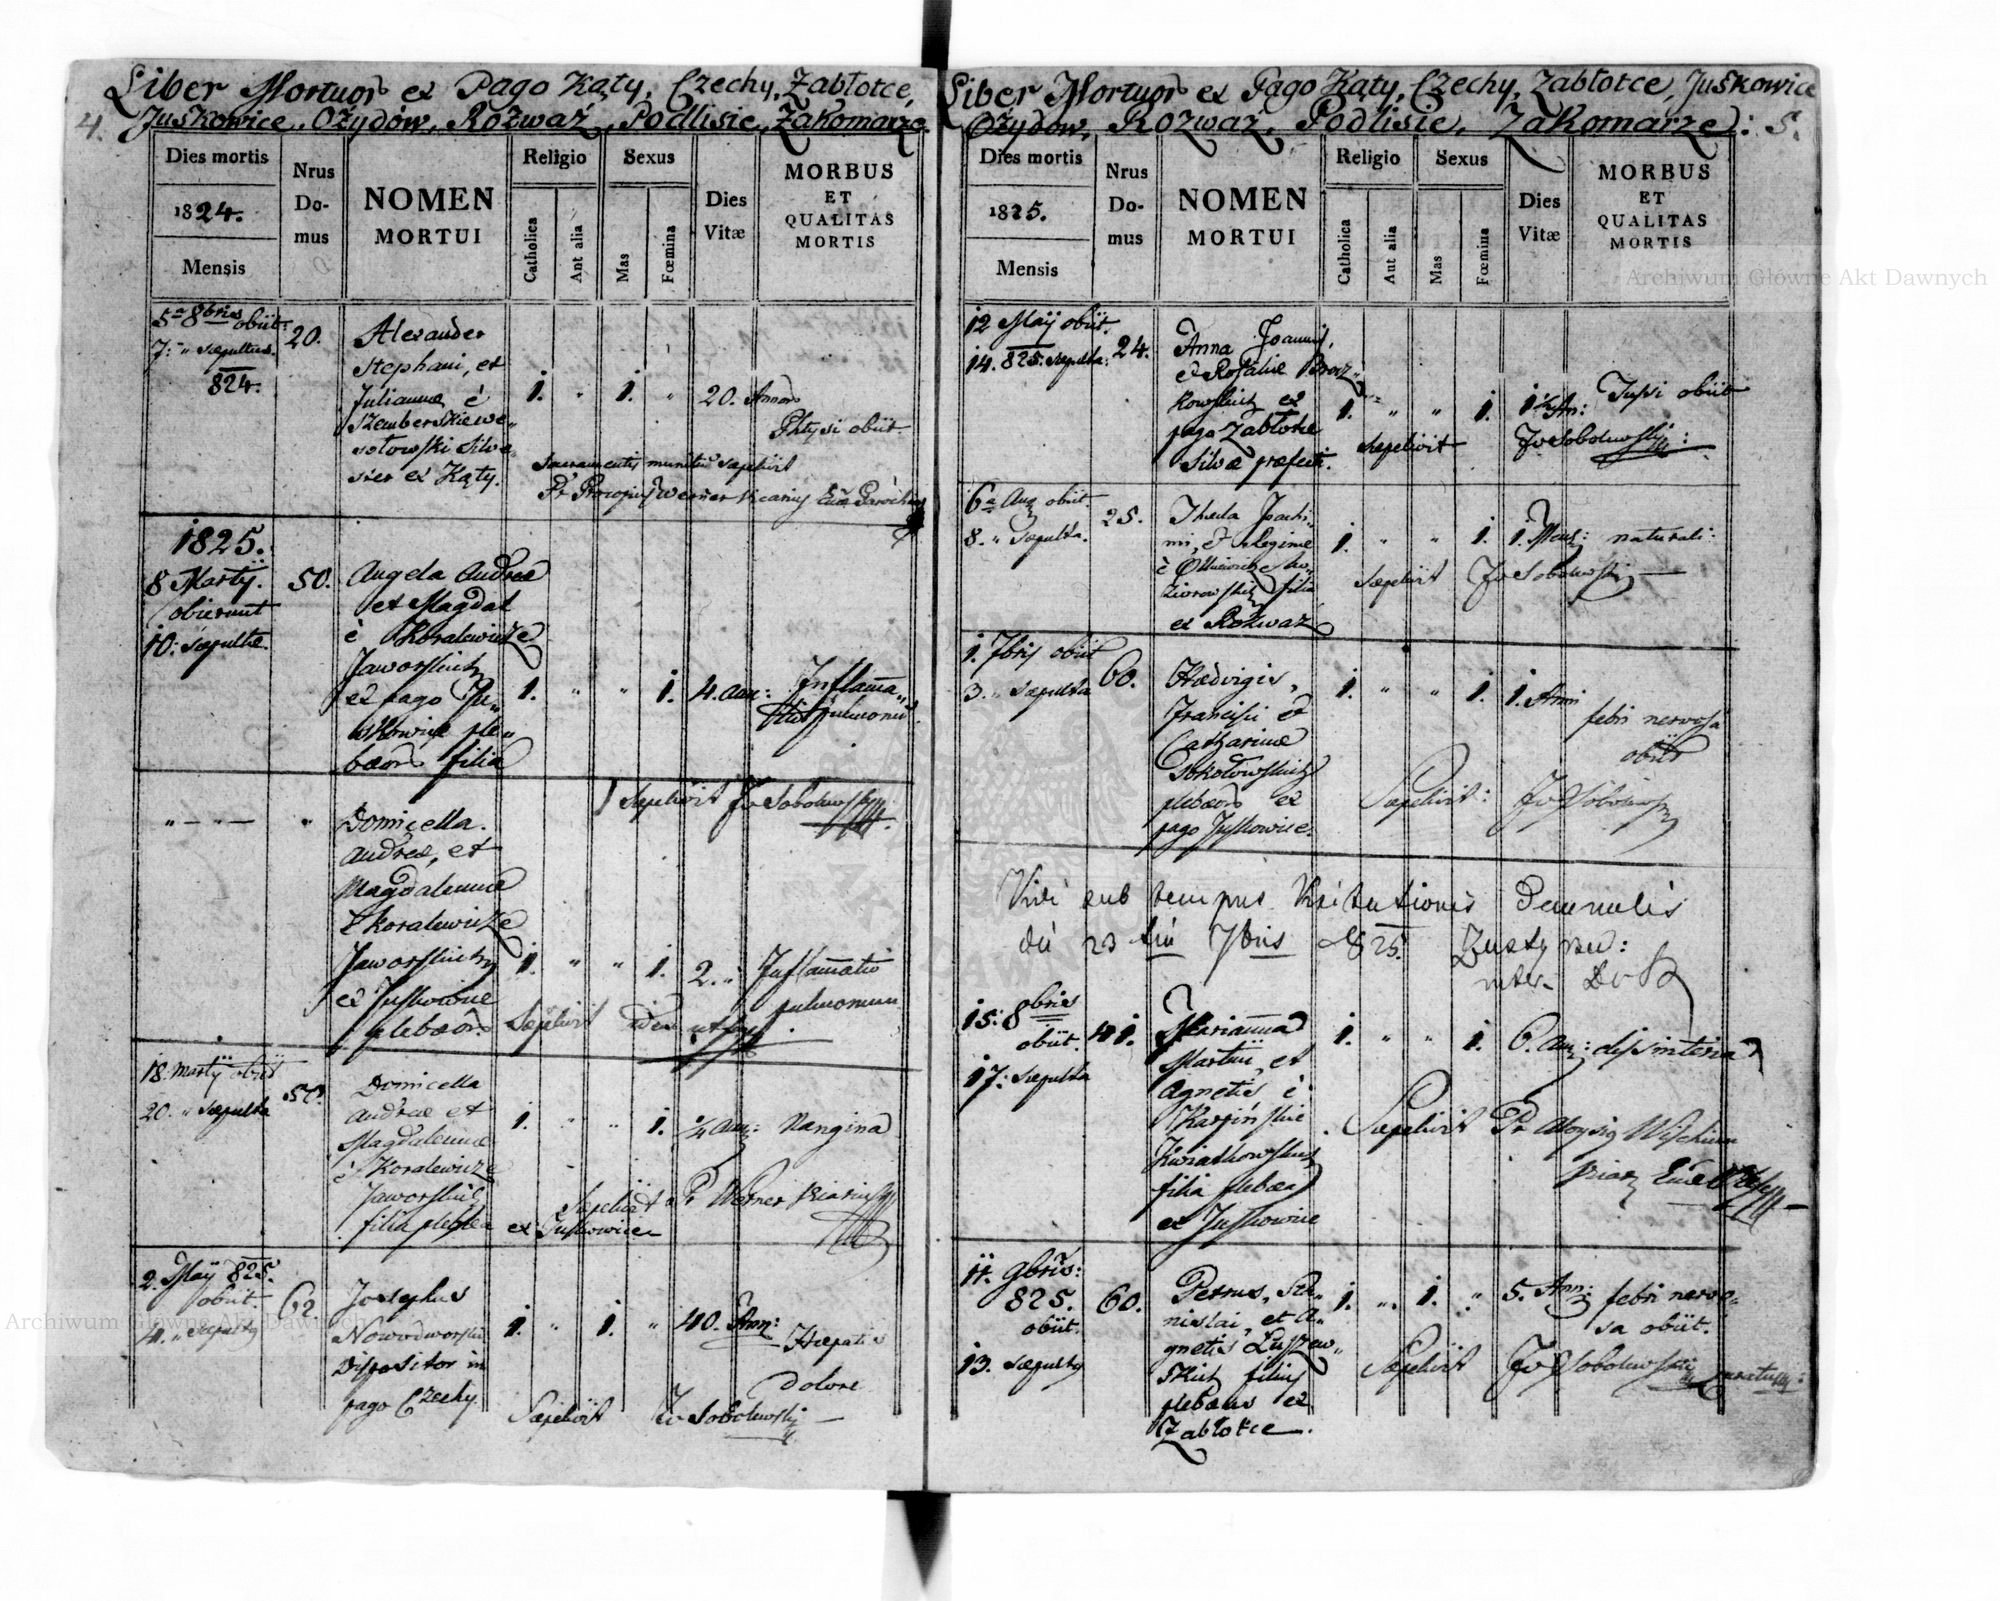 Liber Mortuor ex Pago Kąty, Czechy, Zabłotce,
4. Juśkowice, Ożydów, Rozważ, Podlisie, Zakomarze.
Dies mortis
1824.
Mensis
Nrus
Do-
mus
NOMEN
MORTUI
Religio
Catholica
Aut alia
Sexus
Mas
Fœmina
Dies
Vitæ
MORBUS
ET
QUALITAS
MORTIS
5ta 8bris obiit
7. " sepultus.
824.
20.
Alexander
Stephani, et
Julianna è
Szemberskie We„
sołowski Silve„
ster ex Kąty.
1. " 1. " 20. Annor
Phtysi obiit
Sacramentis munitus sepelivit
Pr Procopius Werner Vicarius
1825.
8 Martij.
obierunt
10: sepultæ.
50.
Angela Andreæ
et Magdal
è Koralewicze
Jaworskich
ex pago Ju„
śkowice ple„
bæor filia
1. " " 1. 4. ann:
Inflama„
tio pulmonū
Sepelivit Jo Sobolewski
" — " — "
Domicella
Andreæ, et
Magdalennæ
è Koralewicze
Jaworskich
ex Juśkowice
plebæor.
1. " " 1. 2. " Inflamatio
pulmonum
Sepelivit idem ut supra
18. Martij obiit
20. " sepulta
50.
Domicella
Andreæ et
Magdalennæ
è Koralewicze
Jaworskich
filia plebea
1. " " 1. ¼ Ann: Nangina
Sepelivit Pr Werner Vicarius
ex Juśkowice
2. Maij 825.
obiit.
4. " sepultus
62
Josephus
Nowodworski
Dispositor in
pago Czechy.
1. " 1. " 40. Ann:
Hepatis
dolore
Sepelivit Jo Sobolewski
Liber Mortuor ex Pago Kąty, Czechy, Zabłotce, Juśkowice
Ożydów, Rozważ, Podlisie, Zakomarze: 5.
Dies mortis
1825.
Mensis
Nrus
Do-
mus
NOMEN
MORTUI
Religio
Catholica
Aut alia
Sexus
Mas
Fœmina
Dies
Vitæ
MORBUS
ET
QUALITAS
MORTIS
12 Maij obiit.
14. 825. sepulta:
24.
Anna Joannis,
et Rosaliæ Broz„
kowskich ex
pago Zabłotce
Silvæ præfecti.
1. " " 1. 1½ An: Tussi obiit
Sepelivit Jo Sobolewski
6ta Aug obiit.
8. " Sepulta.
25.
Thecla Joachi„
mi, et Reginæ
filia
ex Rozważ
1. " " 1. 1. Mens: naturali:
Sepelivit Jo Sobolewski
1. 7bris obiit
3. " sepulta
60.
Hedvigis,
Francisci et
Catharinæ
Sokołowskich
plebæor ex
pago Juśkowice.
1. " " 1. 1. Anni
febri nervosa
obiit
Sepelivit: Jo Sobolewski
Vidi sub tempus Visitationis Decanalis
die 23 7bris 825.
15: 8bris
obiit.
17: sepulta
41.
Marianna
Martini, et
Agnetis è
Karpińskie
Kwiatkowskich
filia plebea
ex Juśkowice
1. " " 1. 6. an: disinteria
Sepelivit Pr Aloysig
11. 9bris:
825.
obiit.
13. sepultus
60.
Petrus, Sta„
nislai, et A„
gnetis Luszew„
skich filius
plebæus ex
Zabłotce.
1. " 1. " 5. Ann: febri nervo„
sa obiit.
Sepelivit Jo Sobolewski
Archiwum Główne Akt Dawnych
Archiwum Główne Akt Dawnych